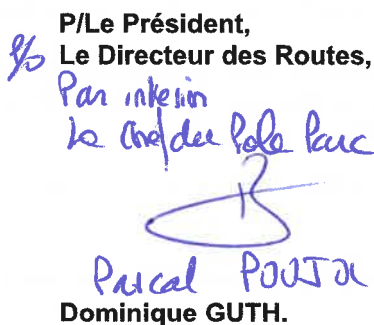 P/Le Président,
P/o Le Directeur des Routes,
Par intérim
Le Chef du Pole Parc
Pascal
Dominique GUTH.